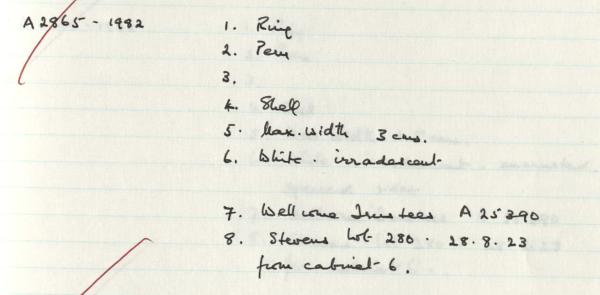 A2865-1982
1. Ring
2. Peru
3.
4. Shell
5. Max. width 3 cms.
6. White. irradescent
7. Wellcome Trustees A 25390
8. Stevens Lot 280. 28.8.23
from cabinet 6.